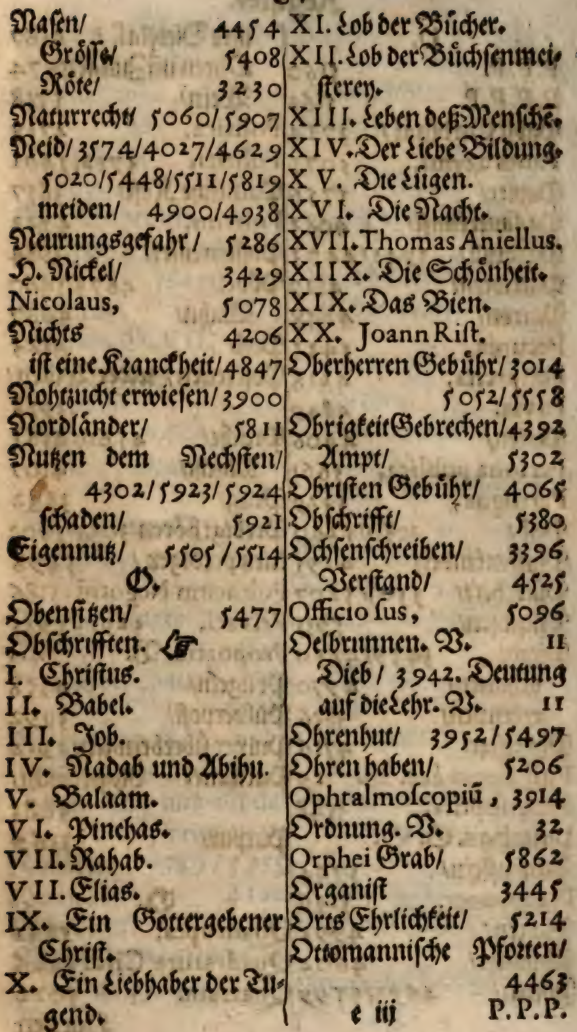 Nasen/ 4454
Grösse/ 5408
Röte/ 3230
Naturrecht/ 5060/5907
Neid/3574/4027/4629
5020/5448/5511/5819
meiden/ 4900/4938
Neurungsgefahr/ 5286
H. Nickel/ 3429
Nicolaus, 5078
Nichts 4206
ist eine Kranckheit/4847
Nohtzucht erwiesen/3900
Nordländer/ 5811
Nutzen dem Nechsten/
4302/5923/5924
schaden/ 5921
Eigennutz/ 5505/5514
O.
Obensitzen/ 5477
Obschrifften. ☞
I. Christus.
II. Babel.
III. Job.
IV. Nadab und Abihu.
V. Balaam.
VI. Pinchas.
VII. Rahab.
VII. Elias.
IX. Ein Gottergebener
Christ.
X. Ein Liebhaber der Tu-
gend.
XI. Lob der Bücher.
XII. Lob der Büchsenmei-
sterey.
XIII. Leben deß Mensche̅.
XIV. Der Liebe Bildung.
XV. Die Lügen.
XVI. Die Nacht.
XVII. Thomas Aniellus.
XIIX. Die Schönheit.
XIX. Das Bien.
XX. Joann Rist.
Oberherren Gebühr/ 3014
5052/5558
Obrigkeit Gebrechen/4392
Ampt/ 5302
Obristen Gebühr/ 4065
Obschrifft/ 5380
Ochsenschreiben/ 3396
Verstand/ 4525
Officiosus, 5096
Oelbrunnen. V. 11
Dieb/ 3942. Deutung
auf die Lehr. V. 11
Ohrenhut/ 3952/5497
Ohren haben/ 5206
Ophtalmoscopiū, 3914
Ordnung. V. 32
Orphei Grab/ 5862
Organist 3445
Orts Ehrlichkeit/ 5214
Ottomannische Pforten/
4463
e iij P.P.P.